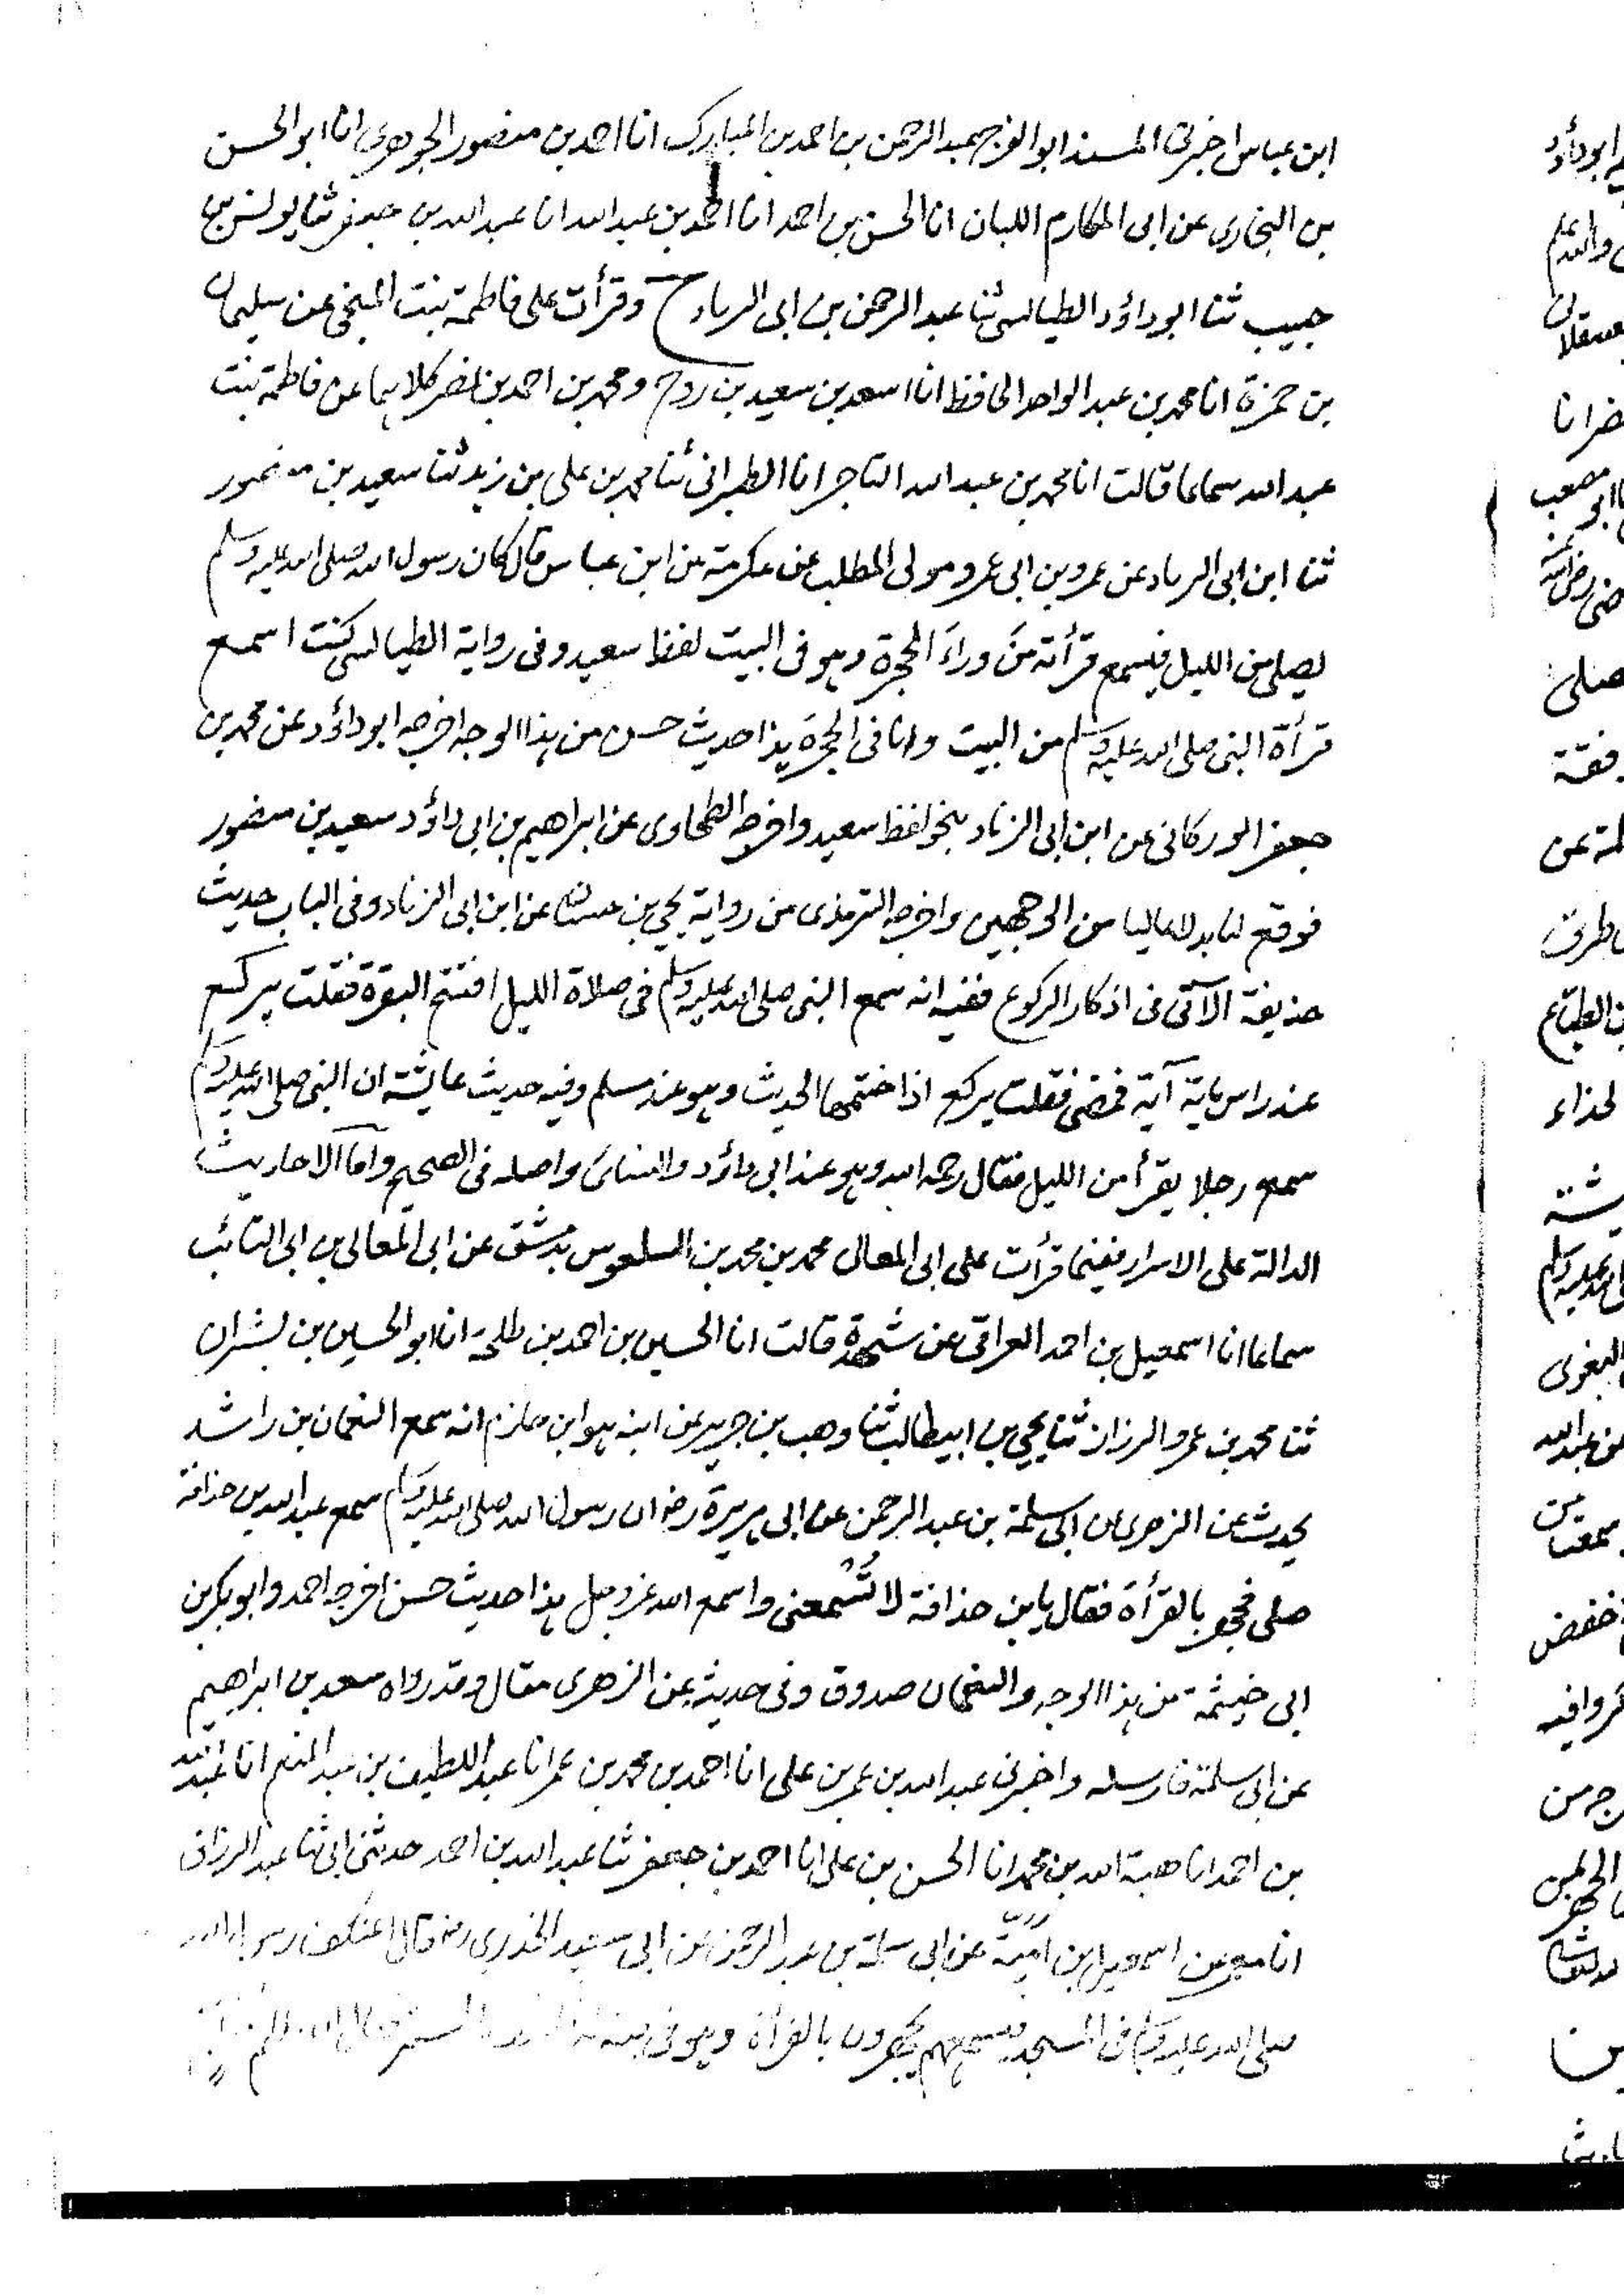 ابن عباس اخبرنى المسند ابو الفرج عبد الرحمن بن احمد بن المبارك انا احمد بن منصور الجوهرى انا ابو الحسن
بن البخارى عن ابى المكارم اللبان انا الحسن بن احمد انا احمد بن عبد الله انا عبد الله بن جعفر ثنا يونس بن
حبيب ثنا ابو داؤد الطيالسى ثنا عبد الرحمن بن ابى الزناد ح وقرأت على فاطمة بنت المنجى عن سليمان
بن حمزة انا محمد بن عبد الواحد الحافظ انا اسعد بن سعيد بن روح ومحمد بن احمد بن نصر كلاهما عن فاطمة بنت
عبد الله سماعا قالت انا محمد بن عبد الله التاجر انا الطبرانى ثنا محمد بن على بن زيد ثنا سعيد بن منصور
ثنا ابن ابى الزناد عن عمرو بن ابى عمرو مولى المطلب عن عكرمة عن ابن عباس قال كان رسول الله صلى الله عليه وسلم
يصلى من الليل فيسمع قرأته من وراء الحجرة وهو فى البيت لفظ سعيد وفى رواية الطيالسى كنت اسمع
قرأة النبى صلى الله عليه وسلم من البيت وانا فى الحجرة هذا حديث حسن من هذا الوجه اخرجه ابو داؤد عن محمد بن
جعفر الوركانى عن ابن ابى الزناد بنحو لفظ سعيد واخرجه الطحاوى عن ابراهيم بن ابى داؤد سعيد بن منصور
فوقع لنا بدلا عاليا من الوجهين واخرجه الترمذى من رواية يحيى بن حسان عن ابن ابى الزناد وفى الباب حديث
حذيفة الآتى فى اذكار الركوع ففيه انه سمع النبى صلى الله عليه وسلم فى صلاة الليل افتتح البقرة فقلت يركع
عند راس ماية آية فمضى فقلت يركع اذا ختمها الحديث وهو عند مسلم وفيه حديث عايشة ان النبى صلى الله عليه وسلم
سمع رجلا يقرأ من الليل فقال رحمه الله وهو عند ابى داؤد والنسائى واصله فى الصحيح واما الاحاديث
الدالة على الاسرار ففيما قرأت على ابى المعالى محمد بن محمد بن السلعوس بدمشق عن ابى المعالى بن ابى التائب
سماعا انا اسمعيل بن احمد العراقى عن شهدة قالت انا الحسين بن احمد بن طلحة انا ابو الحسين بن بشران
ثنا محمد بن عمرو الرزاز ثنا يحيى بن ابيطالب ثنا وهب بن جرير عن ابيه هو ابن حازم انه سمع النعمان بن راشد
يحدث عن الزهرى عن ابى سلمة بن عبد الرحمن عن ابى هريرة رض ان رسول الله صلى الله عليه وسلم سمع عبد الله بن حذافة
صلى فجهر بالقرأة فقال يابن حذافة لا تُسْمعنى واسمع الله عز وجل هذا حديث حسن اخرجه احمد وابو بكر بن
ابى خيثمة من هذا الوجه والنعمان صدوق وفى حديثه عن الزهرى مقال وقد رواه سعد بن ابراهيم
عن ابى سلمة فارسله واخبرنى عبد الله بن عمر بن على انا احمد بن محمد بن عمر انا عبد اللطيف بن عبد المنعم انا عبد الله
بن احمد انا هبة الله بن محمد انا الحسن بن على انا احمد بن جعفر ثنا عبد الله بن احمد حدثنى ابى ثنا عبد الرزاق
انا معمر عن اسمعيل بن امية عن ابى سلمة بن عبد الرحمن عن ابى سعيد الخدرى رض قال اعتكف رسول الله
صلى الله عليه وسلم فى المسجد فسمعهم يجهرون بالقرأة وهو فى قبة